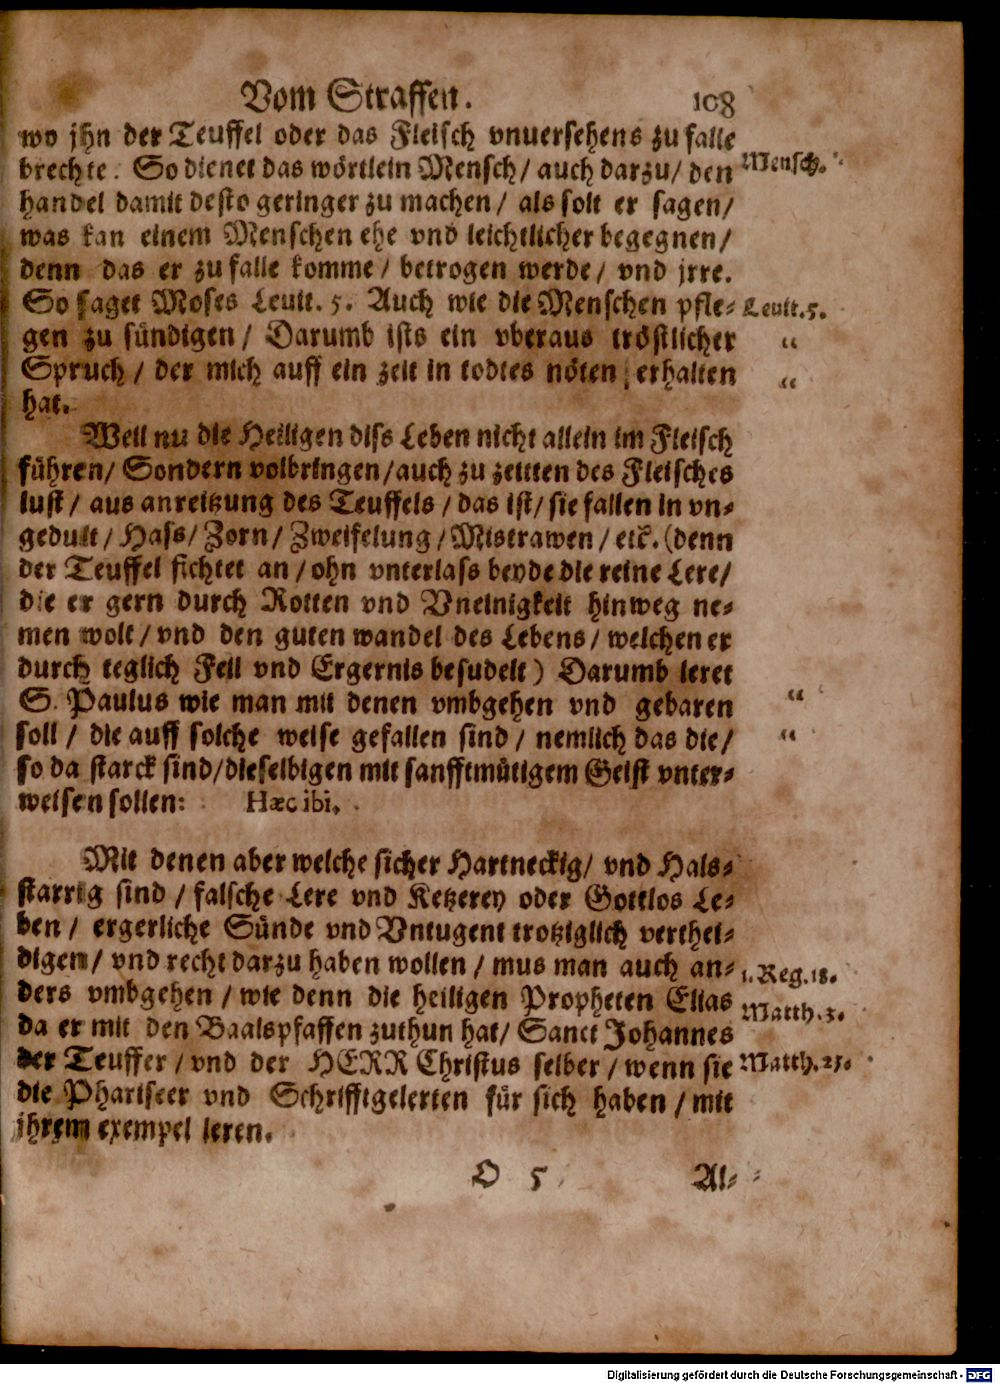 Vom Straffen. 108
wo jhn der Teuffel oder das Fleisch vnuersehens zu falle
brechte. So dienet das wörtlein Mensch/ auch darzu/ den Mensch.
handel damit desto geringer zu machen/ als solt er sagen/
was kan einem Menschen ehe vnd leichtlicher begegnen/
denn das er zu falle komme/ betrogen werde/ vnd jrre.
So saget Moses Leuit. 5. Auch wie die Menschen pfle- Leuit. 5.
gen zu sündigen/ Darumb ists ein vberaus tröstlicher “
Spruch/ der mich auff ein zeit in todtes nöten erhalten “
hat.
Weil nu die Heiligen diss Leben nicht allein im Fleisch
führen/ Sondern volbringen/ auch zu zeitten des Fleisches
lust/ aus anreitzung des Teuffels/ das ist/ sie fallen in vn-
gedult/ Hass/ Zorn/ Zweifelung/ Mistrawen/ etc. (denn
der Teuffel fichtet an/ ohn vnterlass beyde die reine Lere/
die er gern durch Rotten vnd Vneinigkeit hinweg ne-
men wolt/ vnd den guten wandel des Lebens/ welchen er
durch teglich Feil vnd Ergernis besudelt) Darumb leret
S. Paulus wie man mit denen vmbgehen vnd gebaren “
soll/ die auff solche weise gefallen sind/ nemlich das die/ “
so da starck sind/ dieselbigen mit sanfftmütigem Geist vnter-
weisen sollen: Hæc ibi.
Mit denen aber welche sicher Hartneckig/ vnd Hals-
starrig sind/ falsche Lere vnd Ketzerey oder Gottlos Le-
ben/ ergerliche Sünde vnd Vntugent trotziglich verthei-
digen/ vnd recht darzu haben wollen/ mus man auch an- 1. Reg. 18.
ders vmbgehen/ wie denn die heiligen Propheten Elias Matth. 3.
da er mit den Baalspfaffen zuthun hat/ Sanct Johannes
der Teuffer/ vnd der HERR Christus selber/ wenn sie Matth. 23.
die Phariseer vnd Schrifftgelerten für sich haben/ mit
ihrem exempel leren.
O 5 Al-
Digitalisierung gefördert durch die Deutsche Forschungsgemeinschaft - DFG